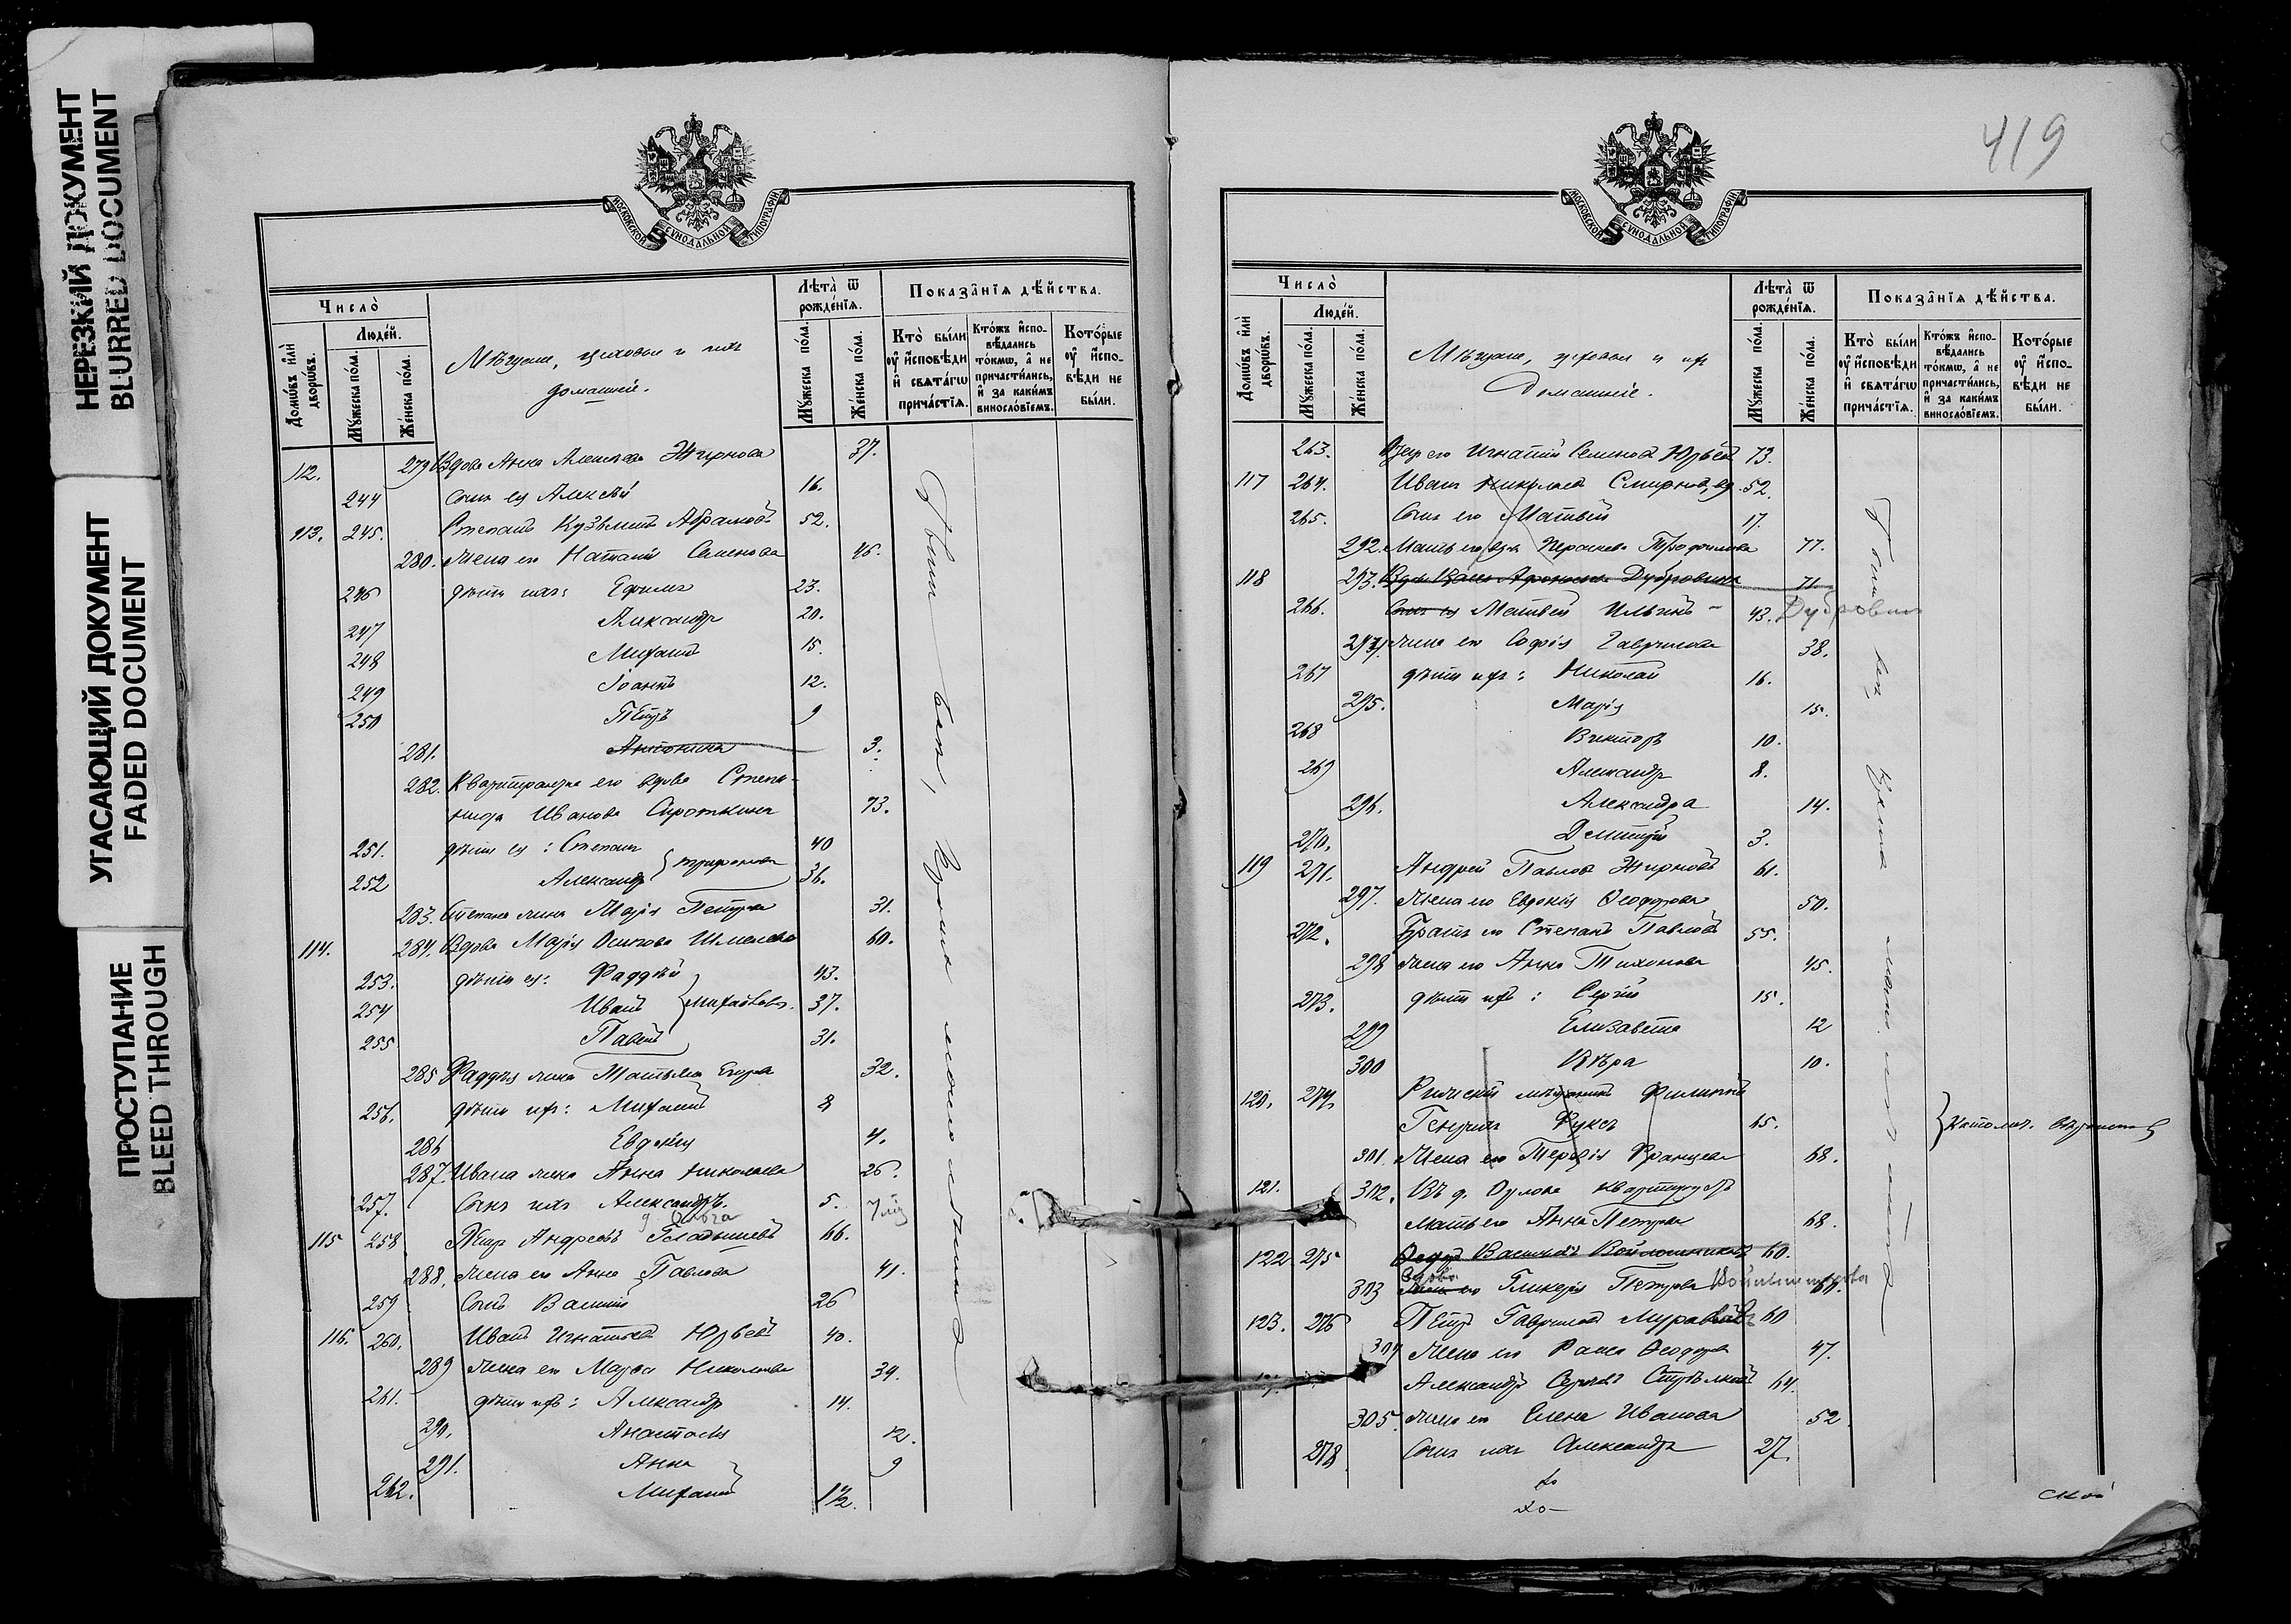 НЕРЕЗКИЙ ДОКУМЕНТ
BLURRED DOCUMENT
УГАСАЮЩИЙ ДОКУМЕНТ
FADED DOCUMENT
ПРОСТУПАНИЕ
BLEED THROUGH
МОСКОВСКОЙ СУНОДАЛЬНОЙ ТИПОГРАФІИ
Число̀
Людéй.
Домѡ́въ и҆лѝ дворѡ́въ.
Мꙋ́жеска по́ла.
Же́нска по́ла.
Мѣщане, цеховые и ихъ
домашніе.
Лѣта̀ ѿ рожде́нїѧ.
Мꙋ́жеска по́ла.
Же́нска по́ла.
Показа̑нїѧ дѣ́йства.
Кто̀ бы́ли ᲂу҆ и҆́сповѣди и҆ свѧта́гѡ прича́стїѧ.
Кто́жъ и҆спо-вѣ́дались то́кмѡ, а҆ не причасти́лись, и҆ за каки́мъ винослóвїемъ.
Кото́рые ᲂу҆ и҆́спо-вѣди не бы́ли.
112. 279 Вдова Анна Алексѣева Жирнова 37.
244 Сынъ ея Алексѣй 16.
113. 245. Степанъ Кузьминъ Абрамовъ 52.
280. Жена его Наталія Семенова 46.
246 дѣти ихъ: Ефимъ 23.
247 Александръ 20.
248 Михаилъ 15.
249 Іоаннъ 12.
250 Петръ 9
281. Антонина 3.
282. Квартирантка его вдова Степа-
нида Иванова Сироткина 73.
251. дѣти ея: Степанъ 40
252 Александръ } Трифоновы 36.
283. Степана жена Марія Петрова 31.
114. 284. Вдова Марія Осипова Шмелева 60.
253. дѣти ея: Фаддѣй 43.
254 Иванъ } Михайловы. 37.
255 Павелъ 31.
285 Фаддѣя жена Татьяна Егорова 32.
256. дѣти ихъ: Михаилъ 8
286 Евдокія 4.
287. Ивана жена Анна Николаева 26.
257. Сынъ ихъ Александръ. 5.
Ольга
115 258 Петръ Андреевъ Гладышевъ 66.
288. жена его Анна Павлова 41.
259 Сынъ Василій 26
116. 260. Иванъ Игнатьевъ Юрьевъ 40.
289 жена его Марѳа Николаева 39.
261. дѣти ихъ: Александръ 14.
290. Анастасія 12.
291. Анна 9
262. Михаилъ 1½.
419
МОСКОВСКОЙ СУНОДАЛЬНОЙ ТИПОГРАФІИ
Число̀
Людéй.
Домѡ́въ и҆лѝ дворѡ́въ.
Мꙋ́жеска по́ла.
Же́нска по́ла.
Мѣщане, цеховые и ихъ
Домашніе.
Лѣта̀ ѿ рожде́нїѧ.
Мꙋ́жеска по́ла.
Же́нска по́ла.
Показа̑нїѧ дѣ́йства.
Кто̀ бы́ли ᲂу҆ и҆́сповѣди и҆ свѧта́гѡ прича́стїѧ.
Кто́жъ и҆спо-вѣ́дались то́кмѡ, а҆ не причасти́лись, и҆ за каки́мъ винослóвїемъ.
Кото́рые ᲂу҆ и҆́спо-вѣди не бы́ли.
263. Отецъ его Игнатій Семеновъ Юрьевъ 73.
117 264. Иванъ Николаевъ Смирновъ, вд. 52.
265. Сынъ его Матвѣй 17.
292. Мать его вдова Параскева Трофимова 77.
118 293. Дубровина 71.
266. Сынъ ея Матвѣй Ильинъ 43. Дубровинъ
294. жена его Софія Гаврилова 38.
267 дѣти ихъ: Николай 16.
295. Марія 15.
268 Викторъ 10.
269 Александръ 8.
296. Александра 14.
270. Дмитрій 3.
119 271. Андрей Павловъ Жирновъ 61.
297. жена его Евдокія Ѳеодорова 50.
272. Братъ его Степанъ Павловъ 55.
298 жена его Анна Тихонова 45.
273. дѣти ихъ: Сергій 15.
299 Елизавета 12
300 Вѣра 10.
120. 274. Рижскій мѣщанинъ Филиппъ
Генрихъ Фуксъ 65.
301 Жена его Терезія Францева 68.
121. 302. Въ д. Орлова
мать его Анна Петрова 68.
122 275 Ѳедоръ Васильевъ Войлошниковъ 60.
Вдова
303 жена его Гликерія Петрова Войлошникова 60.
123. 276 Петръ Гавриловъ Муравьевъ 60
304 Жена его Раиса Ѳеодорова 47.
Александръ Сергѣевъ 64.
305. жена его Елена Иванова 52
278 Сынъ ихъ Александръ 27.